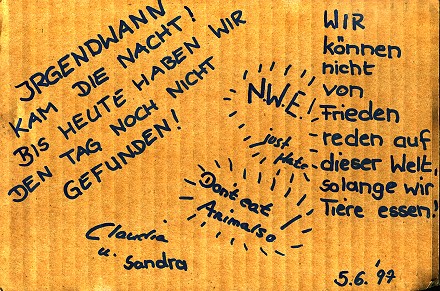 JRGENDWANN
KAM DIE NACHT!
BIS HEUTE HABEN WIR
DEN TAG NOCH NICHT
GEFUNDEN!
N.W.E.!
just Hate
WIR
können
nicht
von
Frieden
reden auf
dieser Welt,
solange wir
Tiere essen!
Don't eat
Animals
Claudia
u. Sandra
5.6.'97